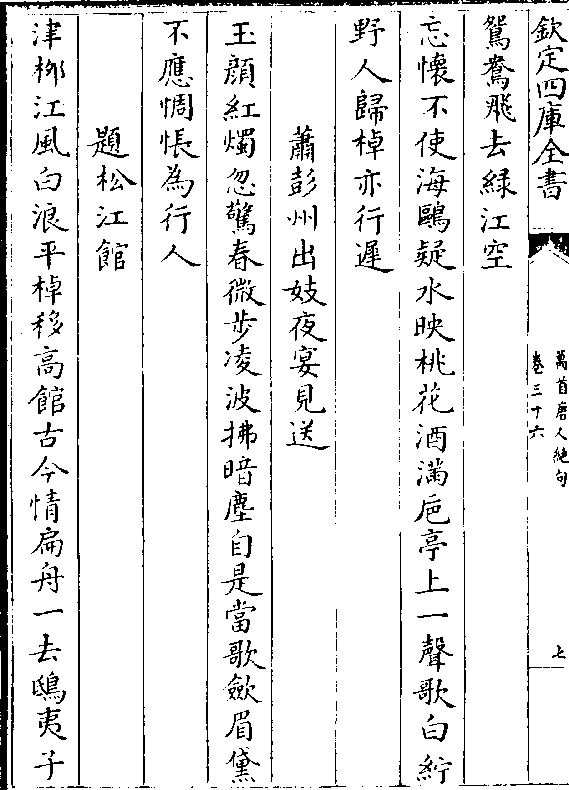 欽定四庫全書
萬首唐人絶句
卷三十六
七
鴛鴦飛去緑江空
忘懷不使海鷗疑水映桃花酒滿巵亭上一聲歌白紵
野人歸棹亦行遲
蕭彭州出妓夜宴見送
玉顔紅燭忽驚春微步凌波拂暗塵自是當歌歛眉黛
不應惆悵為行人
題松江館
津栁江風白浪平棹移高館古今情扁舟一去鴟夷子